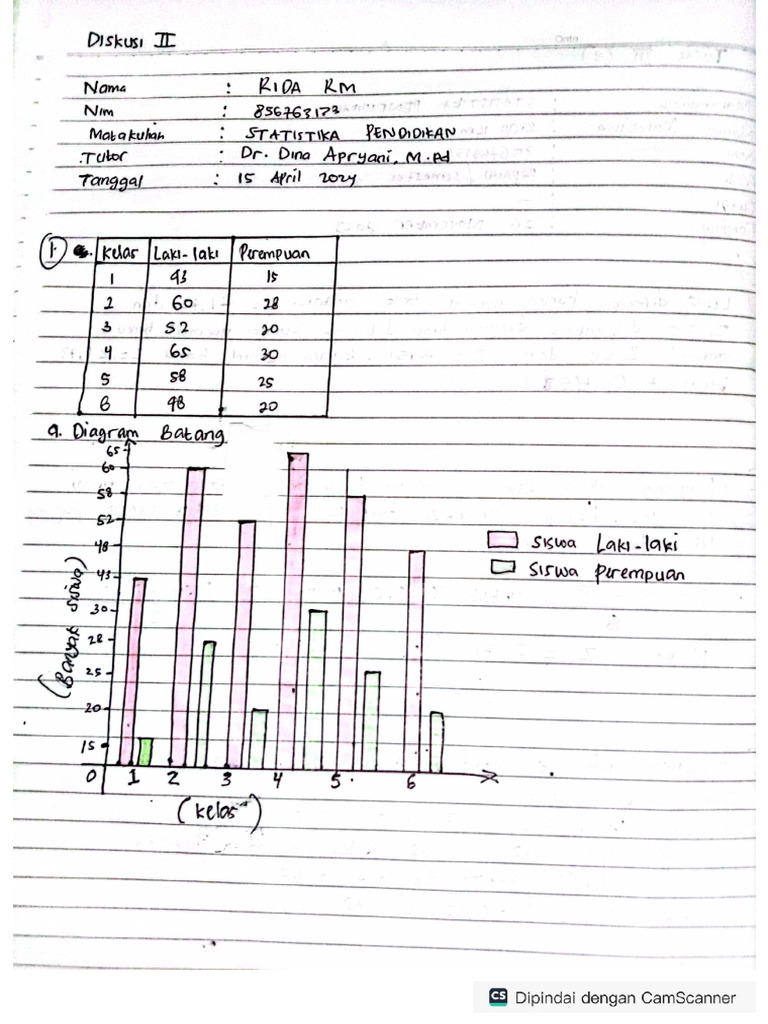 Diskusi II
Nama : RIDA RM
Nim :
Matakuliah : STATISTIKA PENDIDIKAN
Tutor : Dr. Dina Apryani, M.Pd
Tanggal : 15 April 2024
1.
Kelas Laki-laki Perempuan
1 43 15
2 60 28
3 52 20
4 65 30
5 58 25
6 48 20
a. Diagram Batang
65
60
58
52
48
43
30
28
25
20
15
0 1 2 3 4 5 6
(Banyak siswa)
(kelas)
Siswa Laki-laki
Siswa Perempuan
CS Dipindai dengan CamScanner